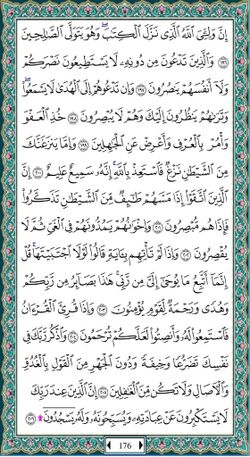 إِنَّ وَلِـِّۧيَ ٱللَّهُ ٱلَّذِي نَزَّلَ ٱلۡكِتَٰبَۖ وَهُوَ يَتَوَلَّى ٱلصَّٰلِحِينَ
١٩٦ وَٱلَّذِينَ تَدۡعُونَ مِن دُونِهِۦ لَا يَسۡتَطِيعُونَ نَصۡرَكُمۡ
وَلَآ أَنفُسَهُمۡ يَنصُرُونَ ١٩٧ وَإِن تَدۡعُوهُمۡ إِلَى ٱلۡهُدَىٰ لَا يَسۡمَعُواْۖ
وَتَرَىٰهُمۡ يَنظُرُونَ إِلَيۡكَ وَهُمۡ لَا يُبۡصِرُونَ ١٩٨ خُذِ ٱلۡعَفۡوَ
وَأۡمُرۡ بِٱلۡعُرۡفِ وَأَعۡرِضۡ عَنِ ٱلۡجَٰهِلِينَ ١٩٩ وَإِمَّا يَنزَغَنَّكَ
مِنَ ٱلشَّيۡطَٰنِ نَزۡغٞ فَٱسۡتَعِذۡ بِٱللَّهِۚ إِنَّهُۥ سَمِيعٌ عَلِيمٌ ٢٠٠ إِنَّ
ٱلَّذِينَ ٱتَّقَوۡاْ إِذَا مَسَّهُمۡ طَٰٓئِفٞ مِّنَ ٱلشَّيۡطَٰنِ تَذَكَّرُواْ
فَإِذَا هُم مُّبۡصِرُونَ ٢٠١ وَإِخۡوَٰنُهُمۡ يَمُدُّونَهُمۡ فِي ٱلۡغَيِّ ثُمَّ لَا
يُقۡصِرُونَ ٢٠٢ وَإِذَا لَمۡ تَأۡتِهِم بِـَٔايَةٖ قَالُواْ لَوۡلَا ٱجۡتَبَيۡتَهَاۚ قُلۡ
إِنَّمَآ أَتَّبِعُ مَا يُوحَىٰٓ إِلَيَّ مِن رَّبِّيۚ هَٰذَا بَصَآئِرُ مِن رَّبِّكُمۡ
وَهُدٗى وَرَحۡمَةٞ لِّقَوۡمٖ يُؤۡمِنُونَ ٢٠٣ وَإِذَا قُرِئَ ٱلۡقُرۡءَانُ
فَٱسۡتَمِعُواْ لَهُۥ وَأَنصِتُواْ لَعَلَّكُمۡ تُرۡحَمُونَ ٢٠٤ وَٱذۡكُر رَّبَّكَ فِي
نَفۡسِكَ تَضَرُّعٗا وَخِيفَةٗ وَدُونَ ٱلۡجَهۡرِ مِنَ ٱلۡقَوۡلِ بِٱلۡغُدُوِّ
وَٱلۡأٓصَالِ وَلَا تَكُن مِّنَ ٱلۡغَٰفِلِينَ ٢٠٥ إِنَّ ٱلَّذِينَ عِندَ رَبِّكَ
لَا يَسۡتَكۡبِرُونَ عَنۡ عِبَادَتِهِۦ وَيُسَبِّحُونَهُۥ وَلَهُۥ يَسۡجُدُونَۤ۩ ٢٠٦
176